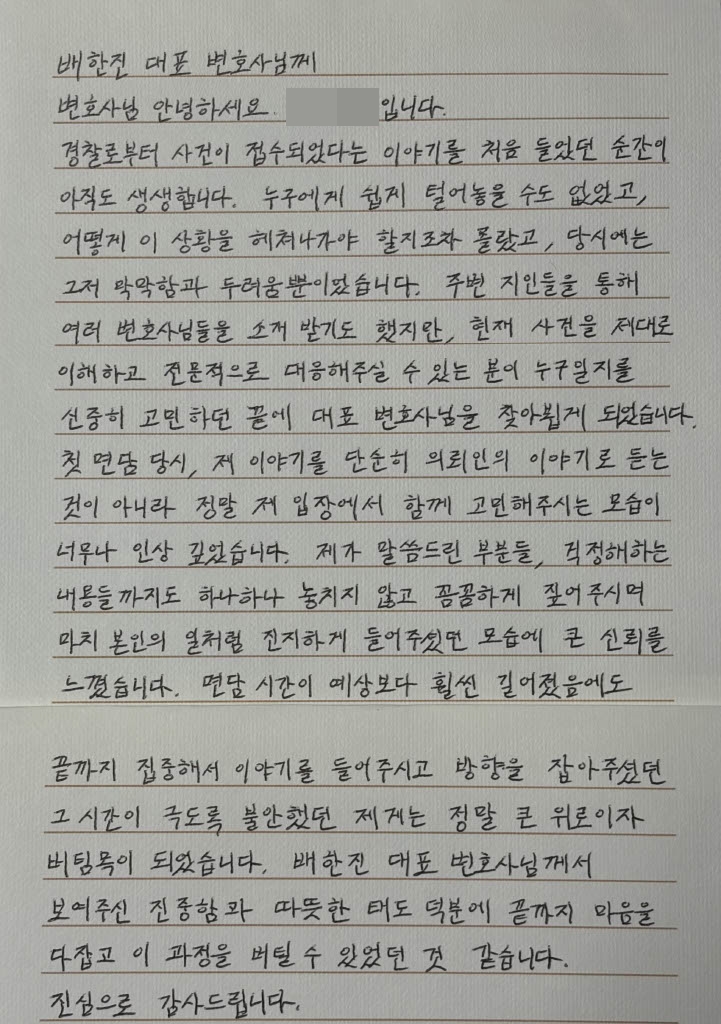 배한진 대표 변호사님께
변호사님 안녕하세요. 입니다.
경찰로부터 사건이 접수되었다는 이야기를 처음 들었던 순간이
아직도 생생합니다. 누구에게 쉽게 털어놓을 수도 없었고,
어떻게 이 상황을 헤쳐나가야 할지조차 몰랐고, 당시에는
그저 막막함과 두려움뿐이었습니다. 주변 지인들을 통해
여러 변호사님들을 소개 받기도 했지만, 현재 사건을 제대로
이해하고 전문적으로 대응해주실 수 있는 분이 누구일지를
신중히 고민하던 끝에 대표 변호사님을 찾아뵙게 되었습니다.
첫 면담 당시, 제 이야기를 단순히 의뢰인의 이야기로 듣는
것이 아니라 정말 제 입장에서 함께 고민해주시는 모습이
너무나 인상 깊었습니다. 제가 말씀드린 부분들, 걱정해하는
내용들까지도 하나하나 놓치지 않고 꼼꼼하게 짚어주시며
마치 본인의 일처럼 진지하게 들어주셨던 모습에 큰 신뢰를
느꼈습니다. 면담 시간이 예상보다 훨씬 길어졌음에도
끝까지 집중해서 이야기를 들어주시고 방향을 잡아주셨던
그 시간이 극도록 불안했던 제게는 정말 큰 위로이자
버팀목이 되었습니다. 배한진 대표 변호사님께서
보여주신 진중함과 따뜻한 태도 덕분에 끝까지 마음을
다잡고 이 과정을 버틸 수 있었던 것 같습니다.
진심으로 감사드립니다.